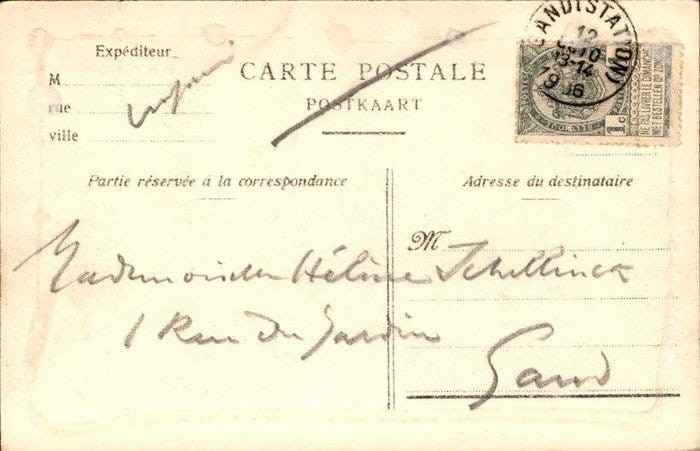 Expéditeur
M
rue
ville
CARTE POSTALE
POSTKAART
GAND (STATION)
12
13-14
1906
1 c
NE PAS LIVRER LE DIMANCHE
NIET BESTELLEN OP ZONDAG
Partie réservée à la correspondance
Adresse du destinataire
M
Mademoiselle Hélène Schellinck
1 Rue du Jardin
Gand